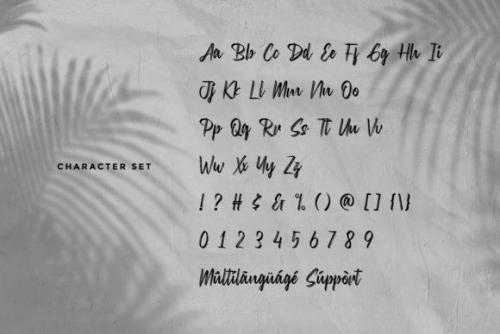 Aa Bb Cc Dd Ee Ff Gg Hh Ii
Jj Kk Ll Mm Nn Oo
Pp Qq Rr Ss Tt Uu Vv
CHARACTER SET
Ww Xx Yy Zz
! ? # $ & % ( ) @ [ ] { \ }
0 1 2 3 4 5 6 7 8 9
Mûltïlãngüágé Súppòrt